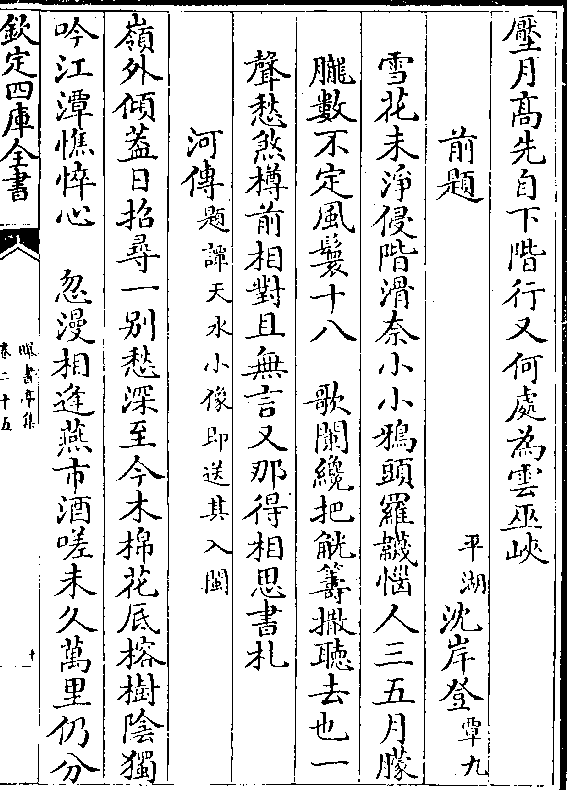 壓月髙先自下階行又何處為雲巫峽
前題
平湖沈岸登覃九
雪花未淨侵階滑奈小小鴉頭羅韈惱人三五月朦
朧數不定風鬟十八　歌闌纔把觥籌撒聽去也一
聲愁煞樽前相對且無言又那得相思書札
河傳題譚天水小像即送其入閩
嶺外傾葢日招尋一别愁深至今木棉花底榕樹陰獨
吟江潭憔悴心　忽漫相逢燕市酒嗟未久萬里仍分
欽定四庫全書
曝書亭集
卷二十五